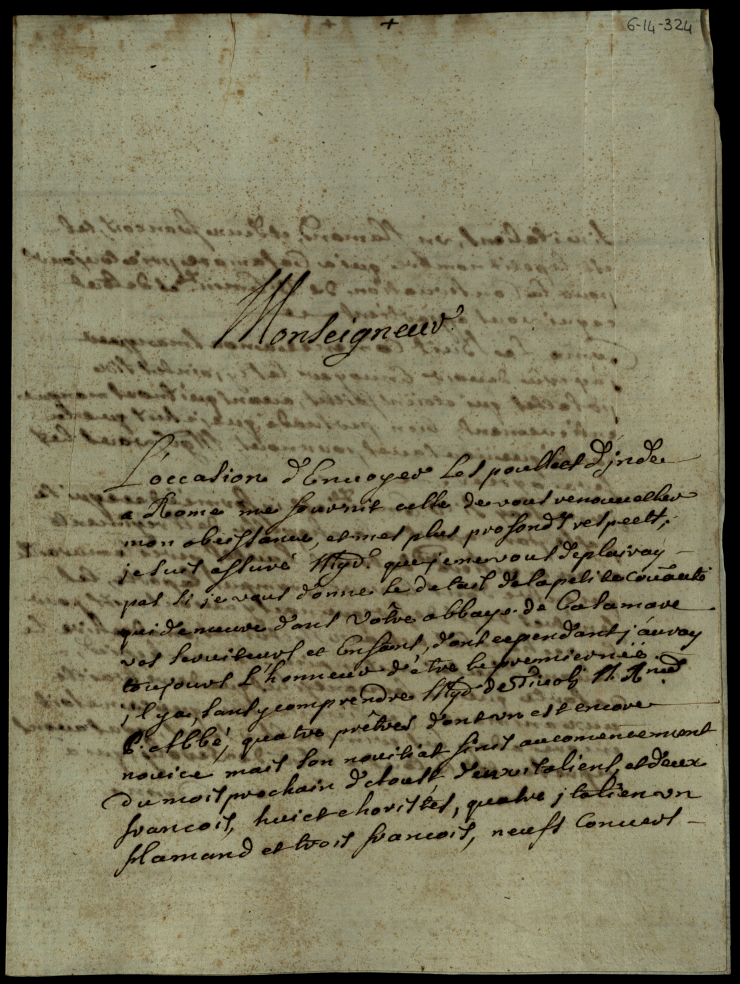 6-14-324
Monseigneur
L'occasion d'Envoyer les poullets d'jnde
a Rome me fournit celle de vous renouveller
mon obeissance, et mes plus profonds respects,
je suis assuré Mgr. que je ne vous deplairay
pas si je vous donne le detail de la petite
qui demeure dans Vôtre abbaye de Casamare
vos serviteurs et Enfans, dont cependant j'auray
toujours l'honneur d'être le premier
jl y a, sans y comprendre Mgr de Tivoli
l'Abbé, quatre prêtres dont un est encore
novice mais son novitiat finit au comencement
du mois prochain d'Aoust, deux italiens, et deux
francois, huict choristes, quatre jtalien un
flamand et trois francois, neuf Convers